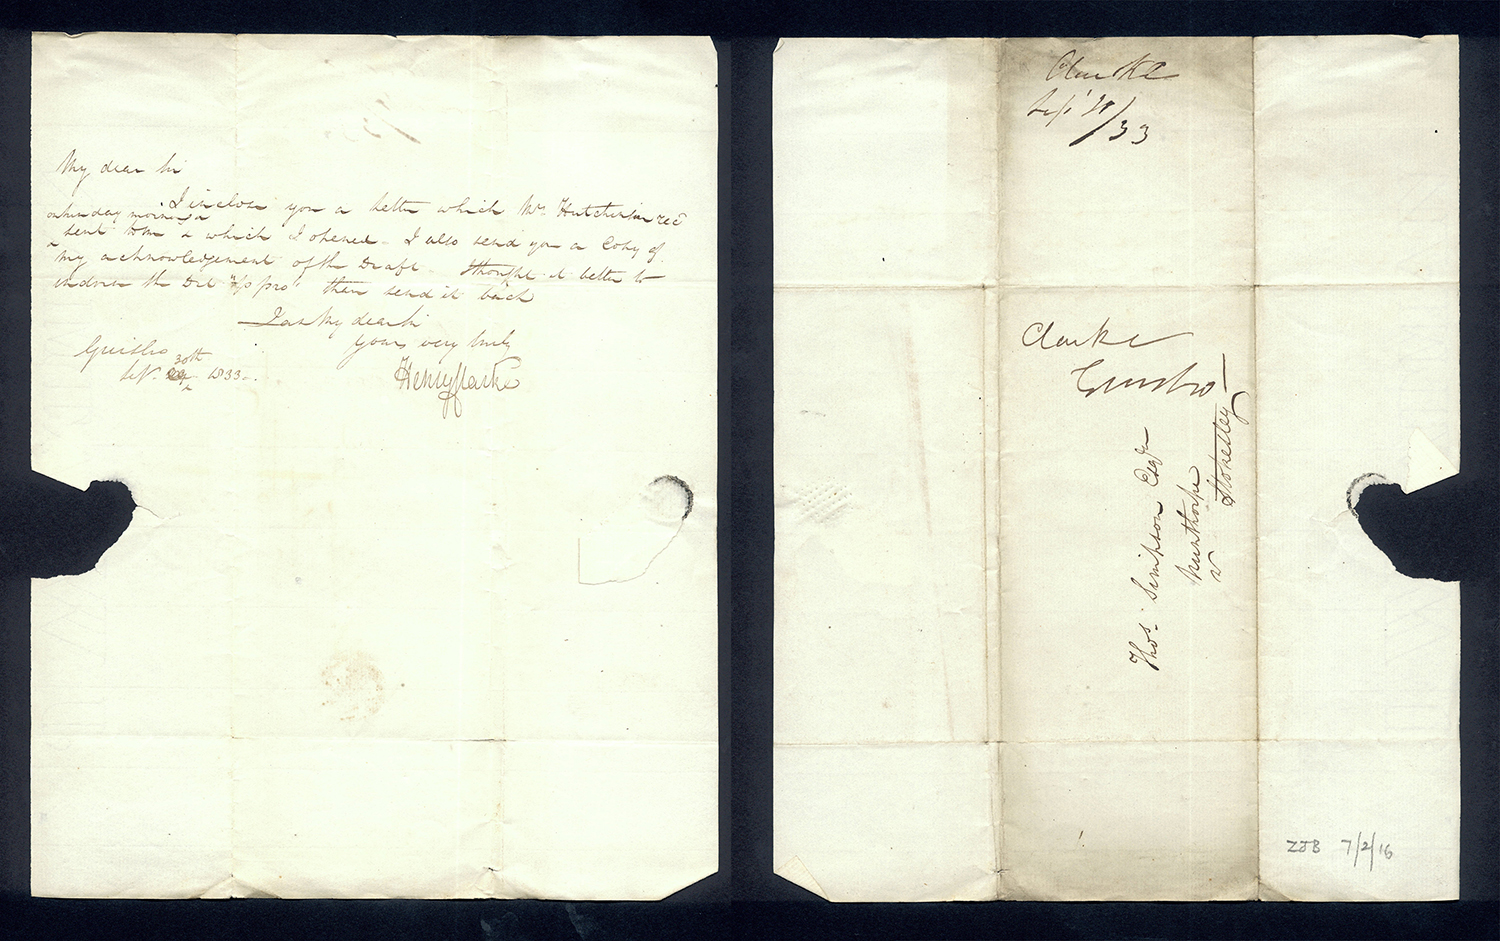 My dear Sir
I inclose you a letter which Mr. Hutchinson recd
on Sunday morning &
sent to me & which I opened - I also send you a Copy of
my acknowledgement of the Draft - I thought it better to
indorse the Dft "p pro" then send it back
I am My dear Sir
Yours very truly
Henry Clarke
Guisbro
30th
Sepr. 1833 -
Clarke
Sepr
/33
Clarke
Guisbro
Thos. Simpson Esqre
Nunthorpe
Stokesley
ZJB 7/2/16